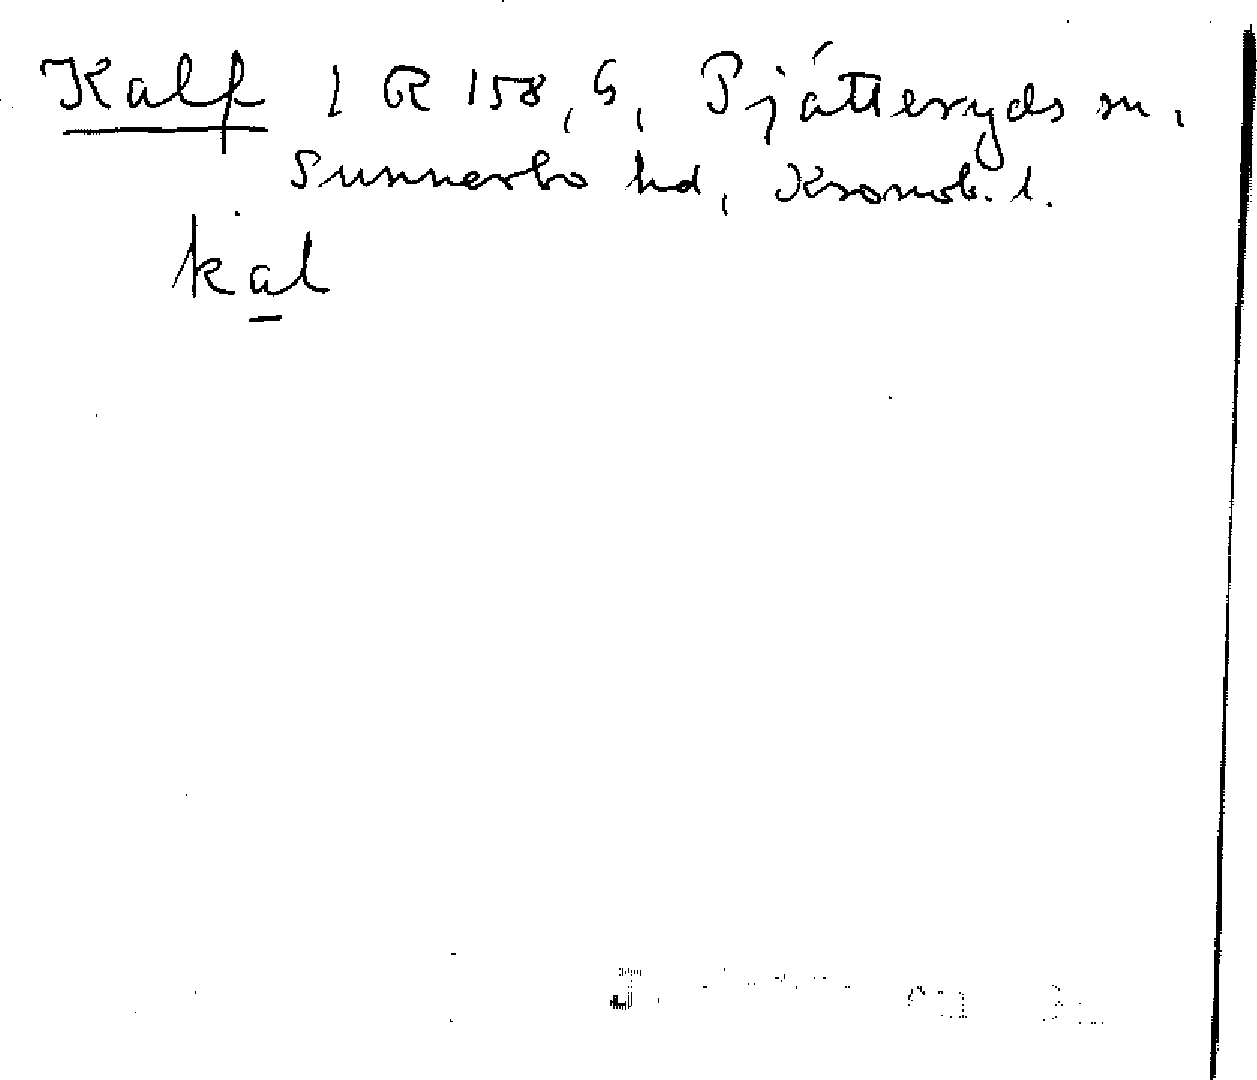 Kalf 1 R 158, 6, Pjätteryds sn,
Sunnerbo hd, Kronob. l.
kal